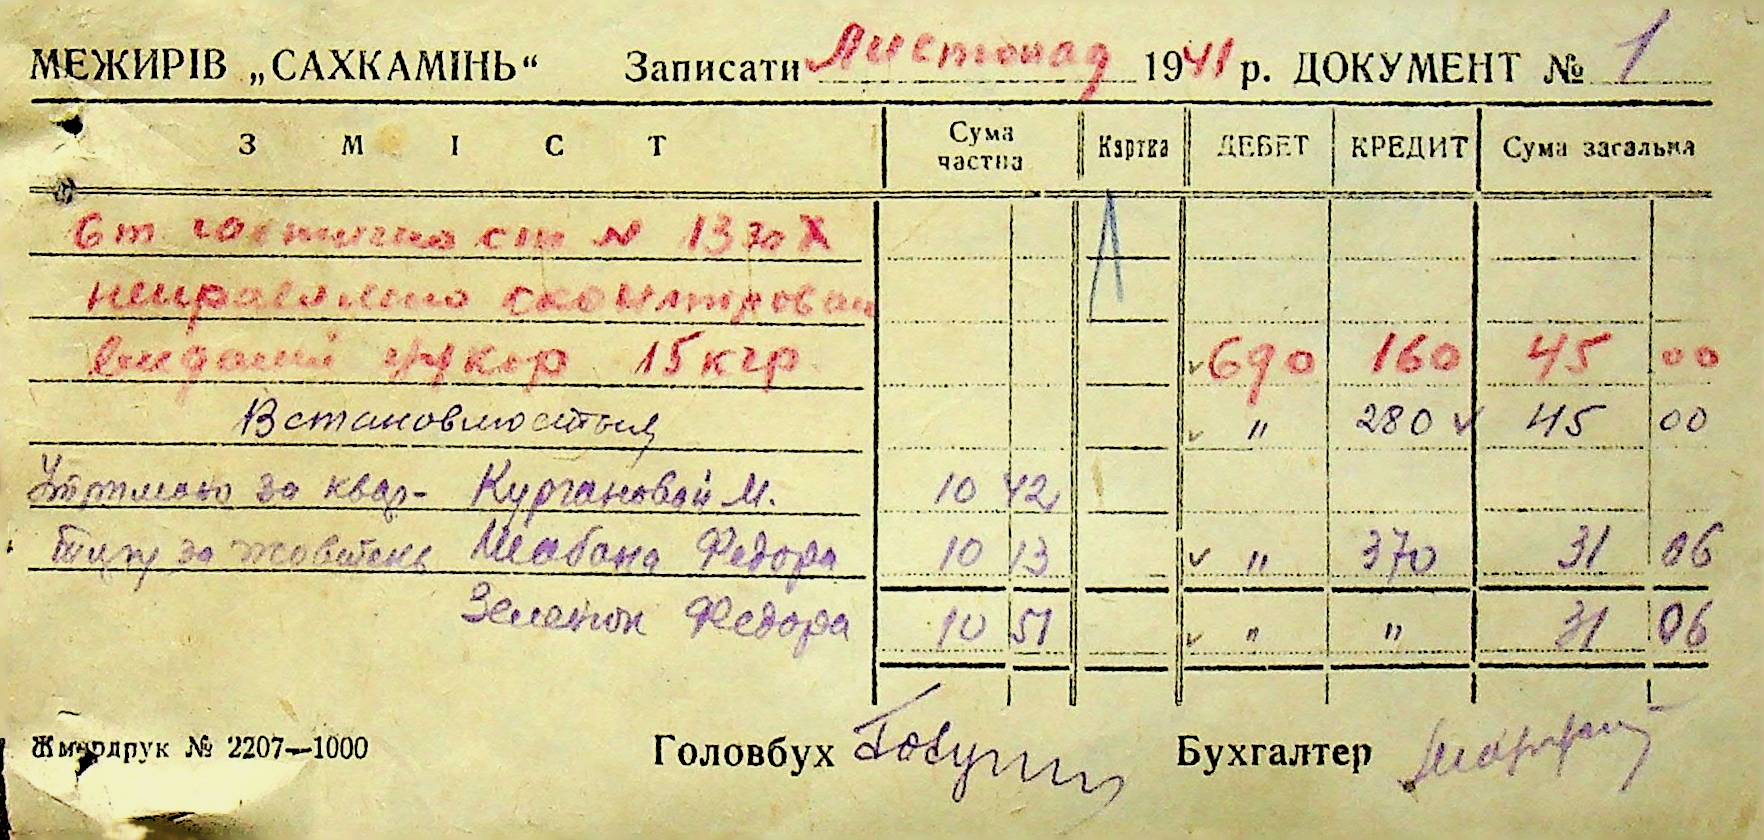 МЕЖИРІВ „САХКАМІНЬ“ Записати Листопад 1941 р. ДОКУМЕНТ № 1
ЗМІСТ Сума частна Картка ДЕБЕТ КРЕДИТ Сума загальна
№ 13 X
неправильно
виданий цукор 15 кгр 690 160 45 00
" 280 45 00
за квар- Кургановой М. 10 42
за жовтень Шабана Федора 10 13 " 370 31 06
Федора 10 51 " " 31 06
Жмердрук № 2207—1000 Головбух Бухгалтер